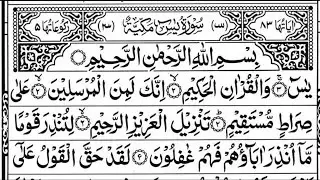 اٰیَاتُهَا ۸۳ (۳۶) سُوْرَةُ یٰسٓ مَكِّیَّةٌ (۴۱) رُكُوْعَاتُهَا ۵
بِسْمِ اللّٰهِ الرَّحْمٰنِ الرَّحِیْمِ
یٰسٓ ۚ۝۱ وَالْقُرْاٰنِ الْحَكِیْمِ ۙ۝۲ اِنَّكَ لَمِنَ الْمُرْسَلِیْنَ ۙ۝۳ عَلٰی
صِرَاطٍ مُّسْتَقِیْمٍ ؕ۝۴ تَنْزِیْلَ الْعَزِیْزِ الرَّحِیْمِ ۙ۝۵ لِتُنْذِرَ قَوْمًا
مَّاۤ اُنْذِرَ اٰبَآؤُهُمْ فَهُمْ غٰفِلُوْنَ ۝۶ لَقَدْ حَقَّ الْقَوْلُ عَلٰۤی